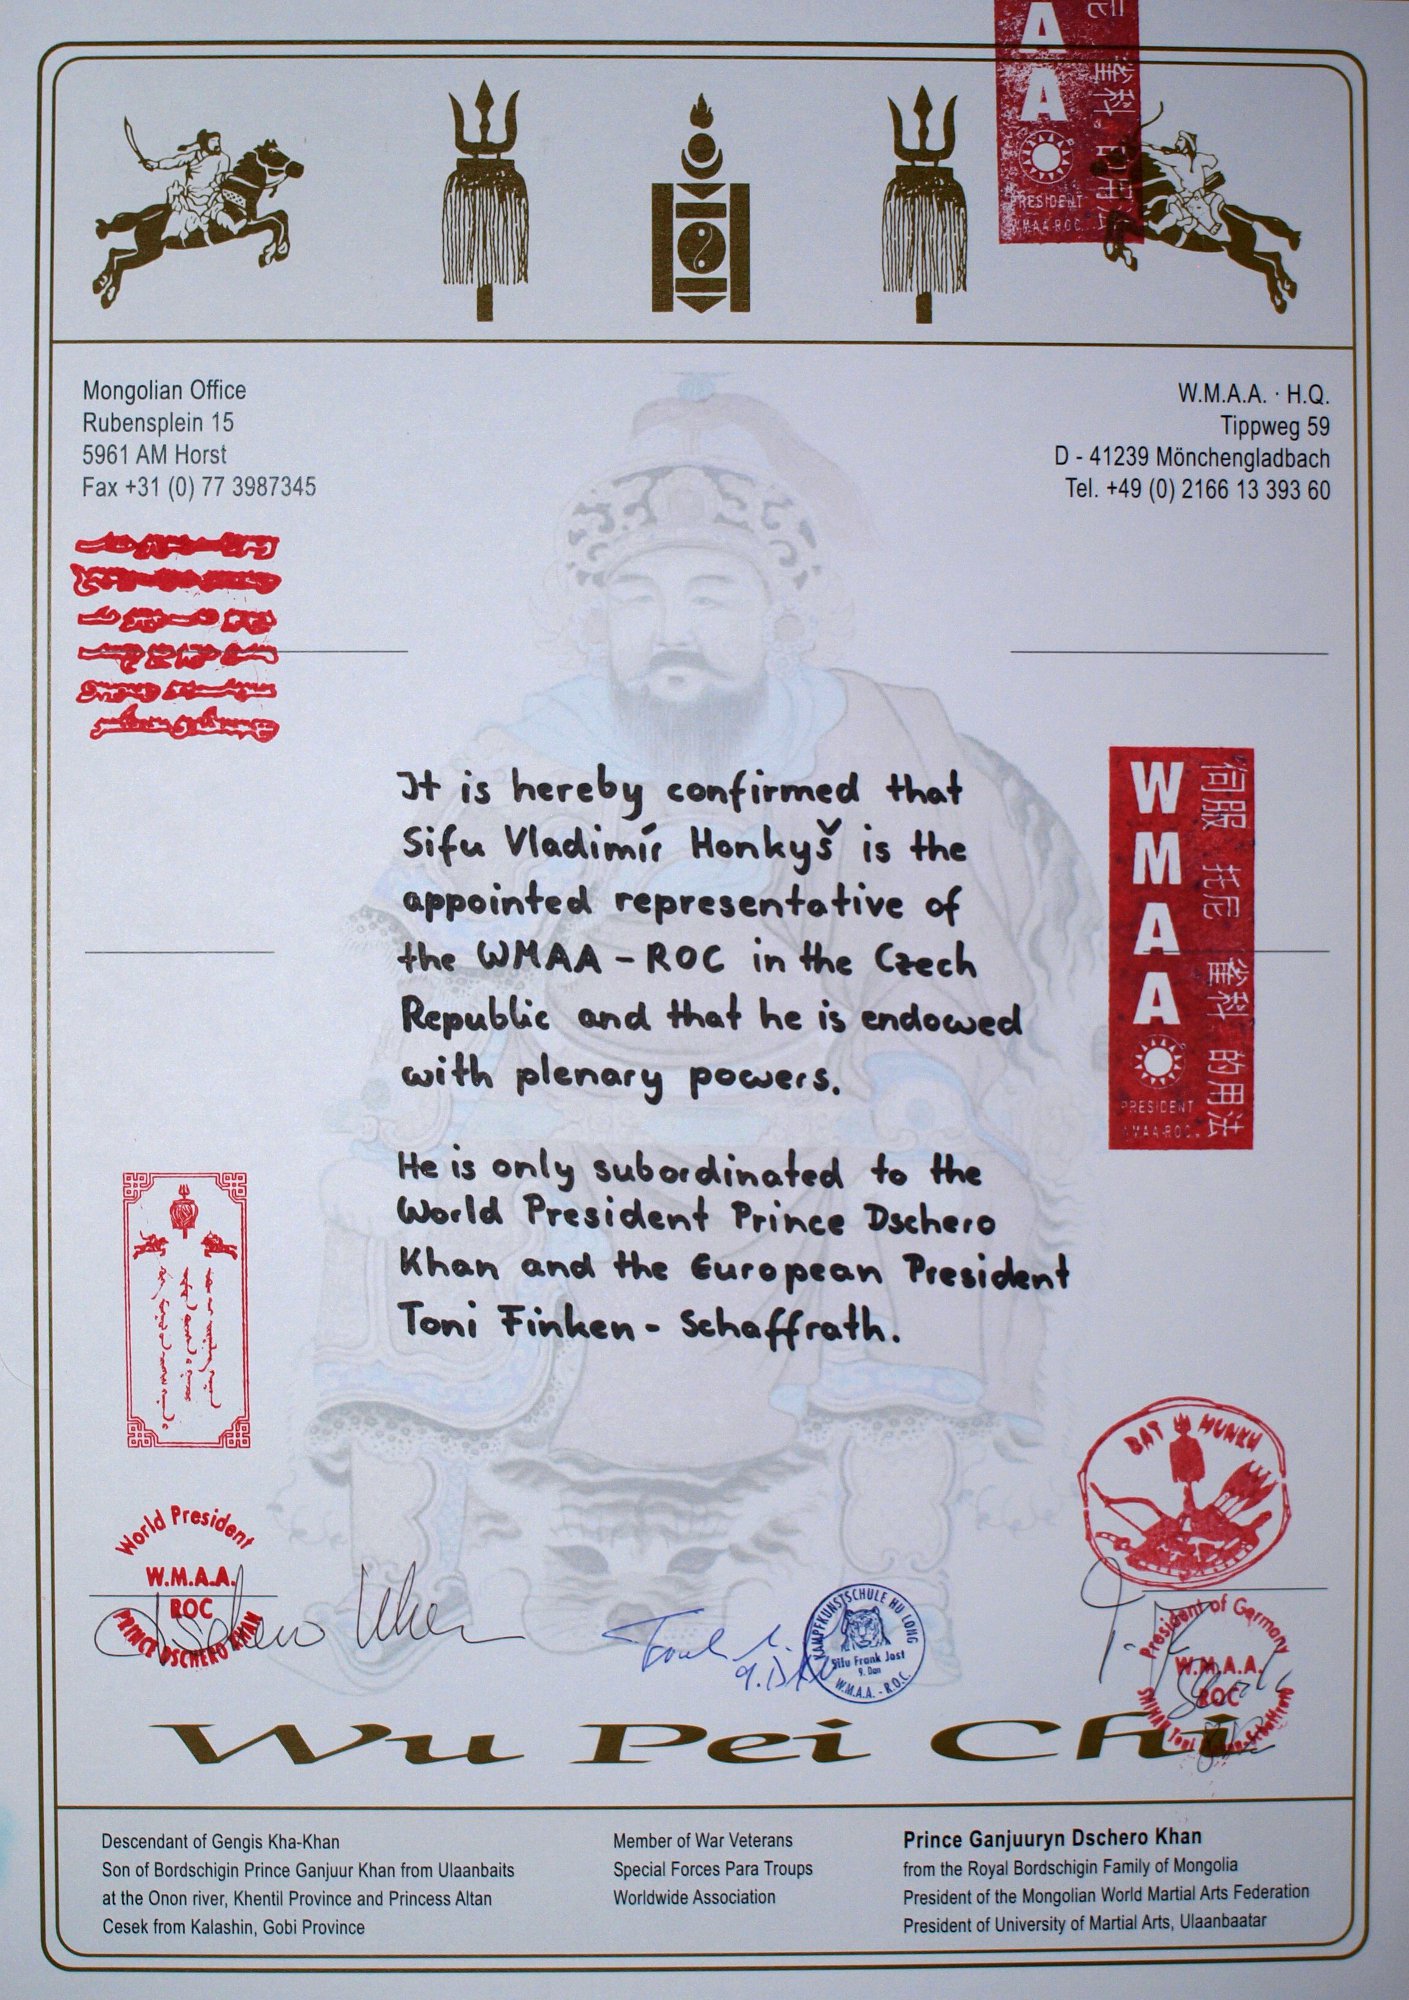 A
A
PRESIDENT
WMAA-ROC
雀科
的用法
Mongolian Office
Rubensplein 15
5961 AM Horst
Fax +31 (0) 77 3987345
W.M.A.A. · H.Q.
Tippweg 59
D - 41239 Mönchengladbach
Tel. +49 (0) 2166 13 393 60
WMAA
伺服 托尼 雀科 的用法
PRESIDENT
WMAA-ROC
It is hereby confirmed that
Sifu Vladimír Honkyš is the
appointed representative of
the WMAA - ROC in the Czech
Republic and that he is endowed
with plenary powers.
He is only subordinated to the
World President Prince Dschero
Khan and the European President
Toni Finken - Schaffrath.
BAT MUNKH
World President
W.M.A.A.
ROC
PRINCE DSCHERO KHAN
Dschero Khan
9. Dan
KAMPFKUNSTSCHULE HU LONG
Sifu Frank Jost
9. Dan
W.M.A.A. - R.O.C.
President of Germany
W.M.A.A.
ROC
SHIHAN Toni Finken-Schaffrath
Wu Pei Chi
Descendant of Gengis Kha-Khan
Son of Bordschigin Prince Ganjuur Khan from Ulaanbaits
at the Onon river, Khentil Province and Princess Altan
Cesek from Kalashin, Gobi Province
Member of War Veterans
Special Forces Para Troups
Worldwide Association
Prince Ganjuuryn Dschero Khan
from the Royal Bordschigin Family of Mongolia
President of the Mongolian World Martial Arts Federation
President of University of Martial Arts, Ulaanbaatar